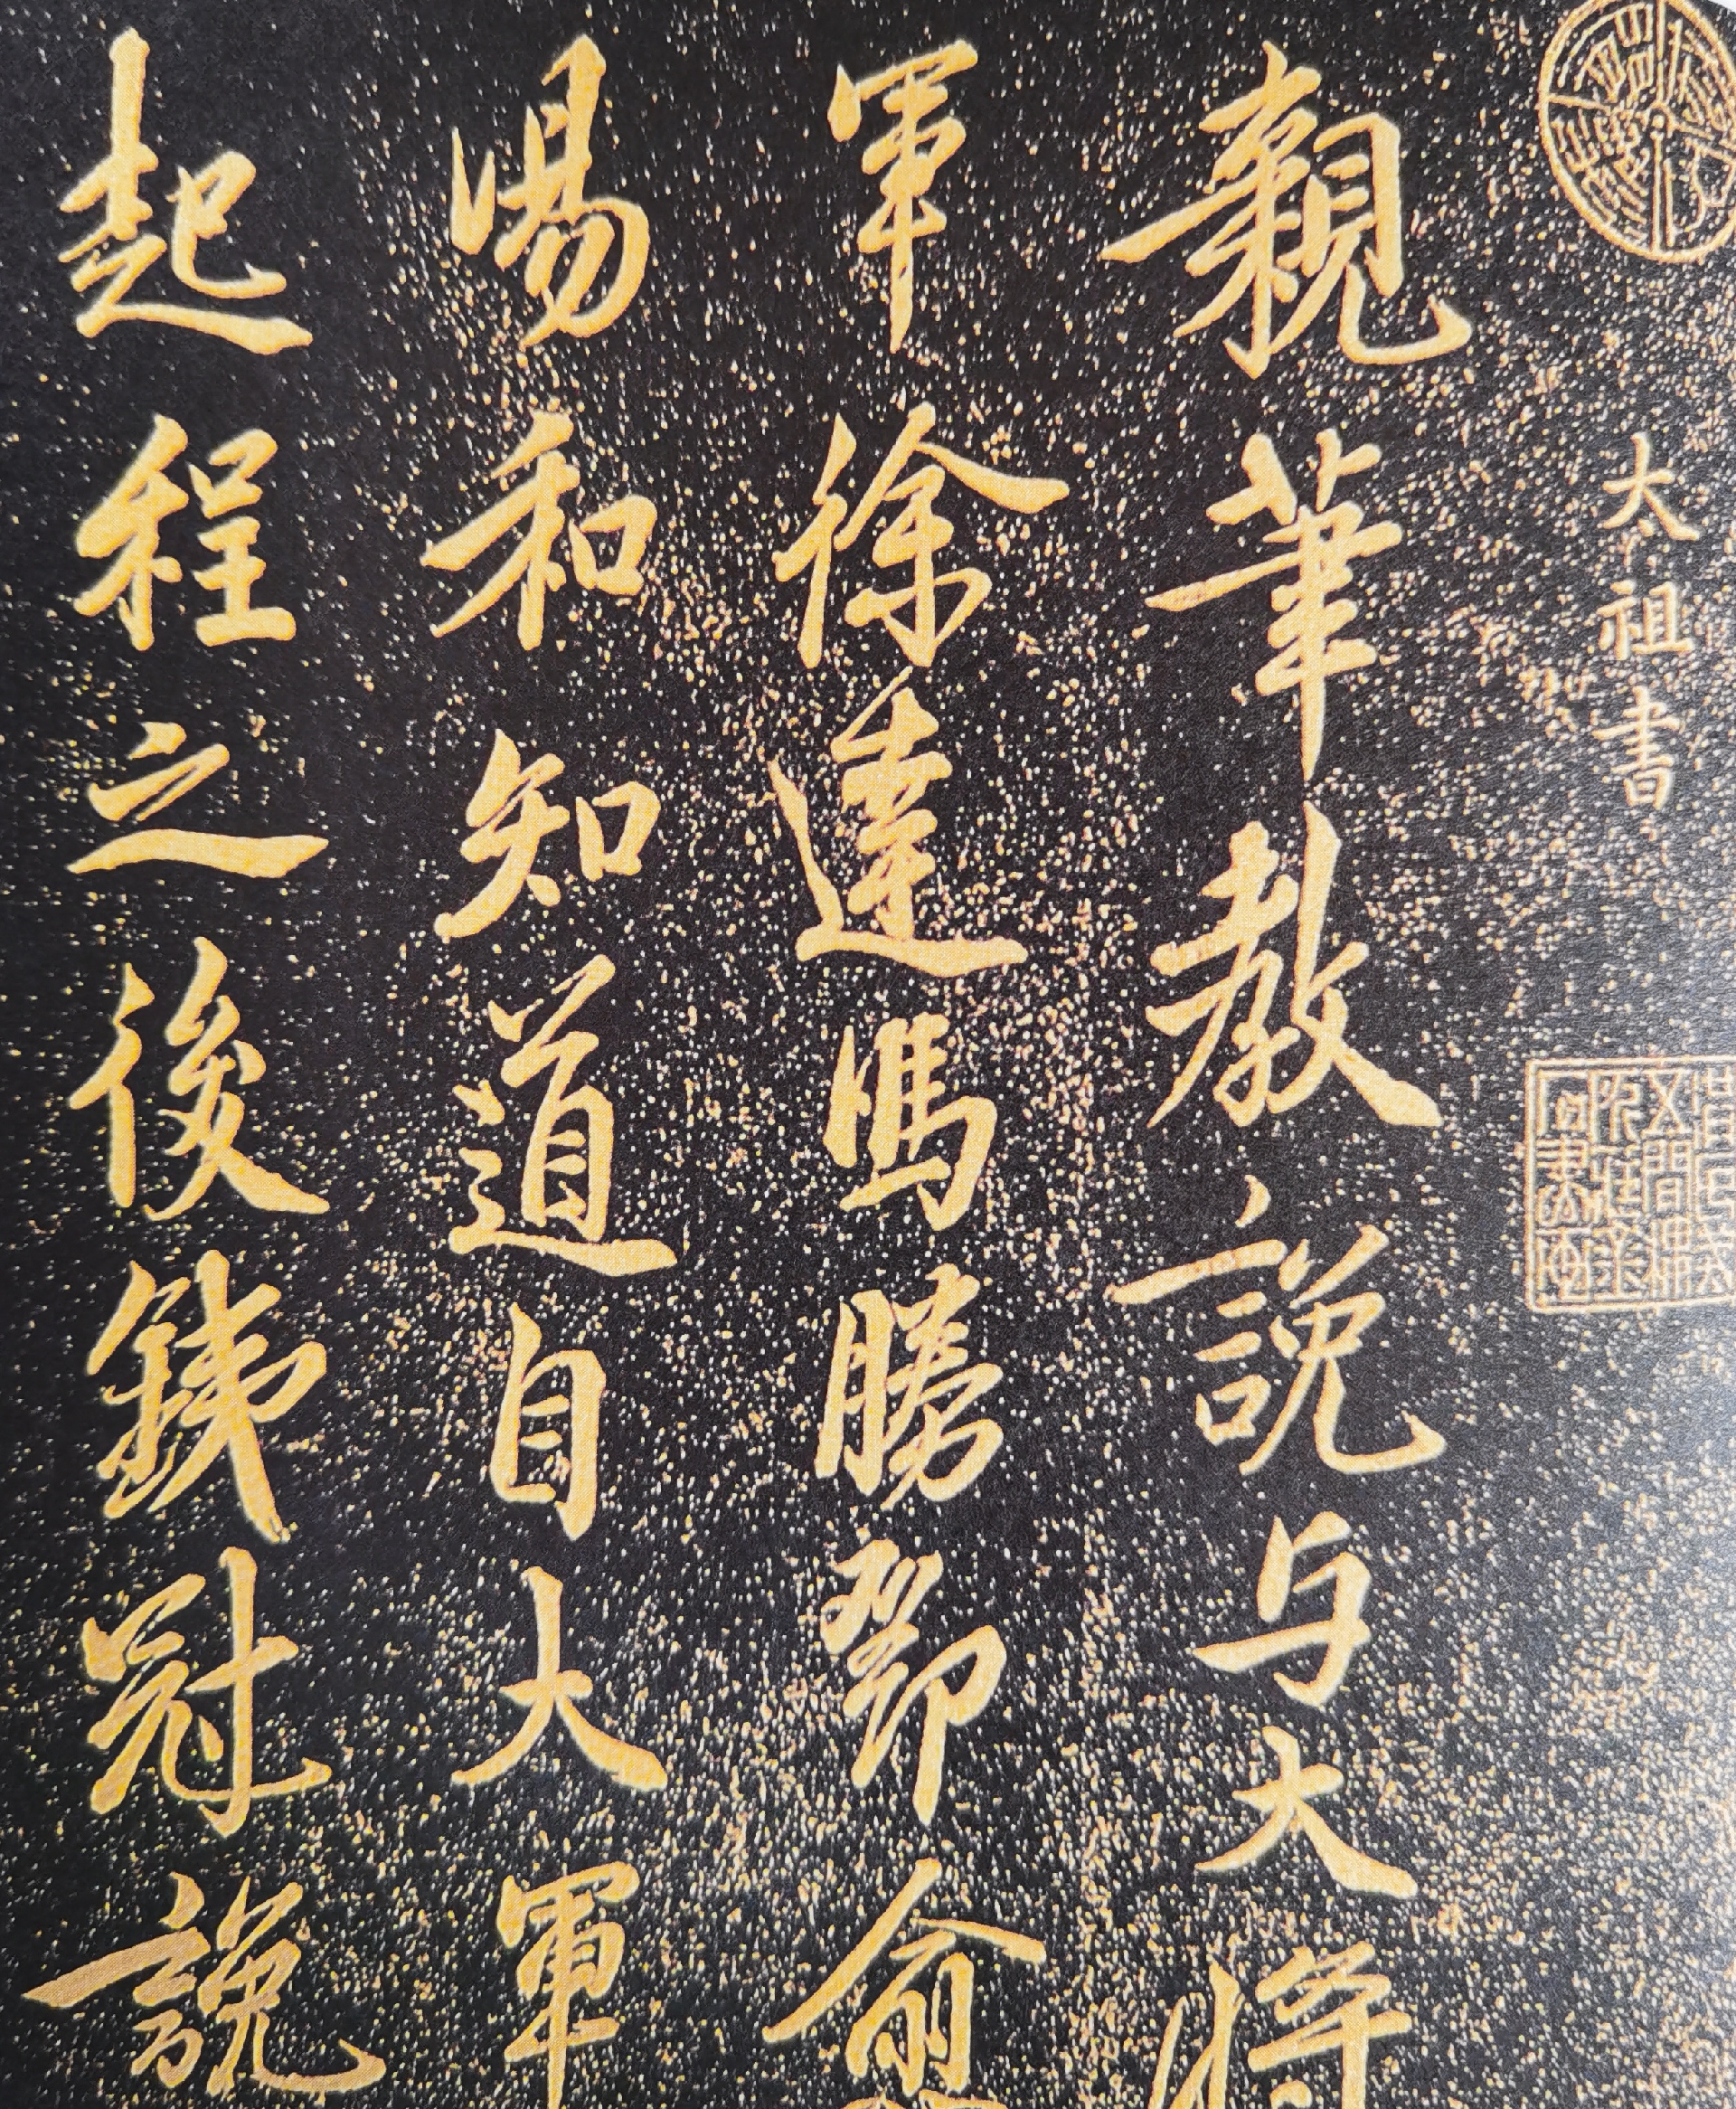 太祖書
親筆教説与大将
軍徐達馮勝鄧俞
湯和知道自大軍
起程之後錢冠説